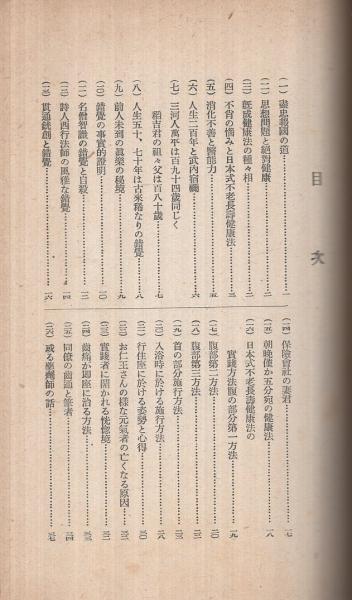 目次
(一) 盡忠報國の道……一
(二) 思想問題と絕對健康……二
(三) 旣成健康法の種々相……二
(四) 不肖の惱みと日本式不老長壽健康法……三
(五) 消化不善と醫能力……五
(六) 人生二百年と武內宿禰……六
(七) 三河人萬平は百九十四歲同じく
稻吉君の祖々父は百八十歲……七
(八) 人生五十、七十年は古來稀なりの錯覺……八
(九) 前人未到の眞樂の秘境……九
(一〇) 錯覺の事實的證明……一〇
(一一) 名僧智識の錯覺と自殺……一二
(一二) 詩人西行法師の風雅な錯覺……一四
(一三) 貫通銃創と錯覺……一六
(一四) 保險會社の妻君……一七
(一五) 朝晚僅か五分宛の健康法……一八
(一六) 日本式不老長壽健康法の
實踐方法腹の部分第一方法……一九
(一七) 腹部第二方法……二〇
(一八) 腹部第三方法……二三
(一九) 首の部分施行方法……二三
(二〇) 入浴時に於ける施行方法……二八
(二一) 行住座に於ける姿勢と心得……三〇
(二二) お仁王さんの樣な元氣者の亡くなる原因……三一
(二三) 實踐者に開かれる恍惚境……三二
(二四) 齒痛が卽座に治る方法……三三
(二五) 同僚の齒通と筆者……三四
(二六) 或る藥劑師の話……三七